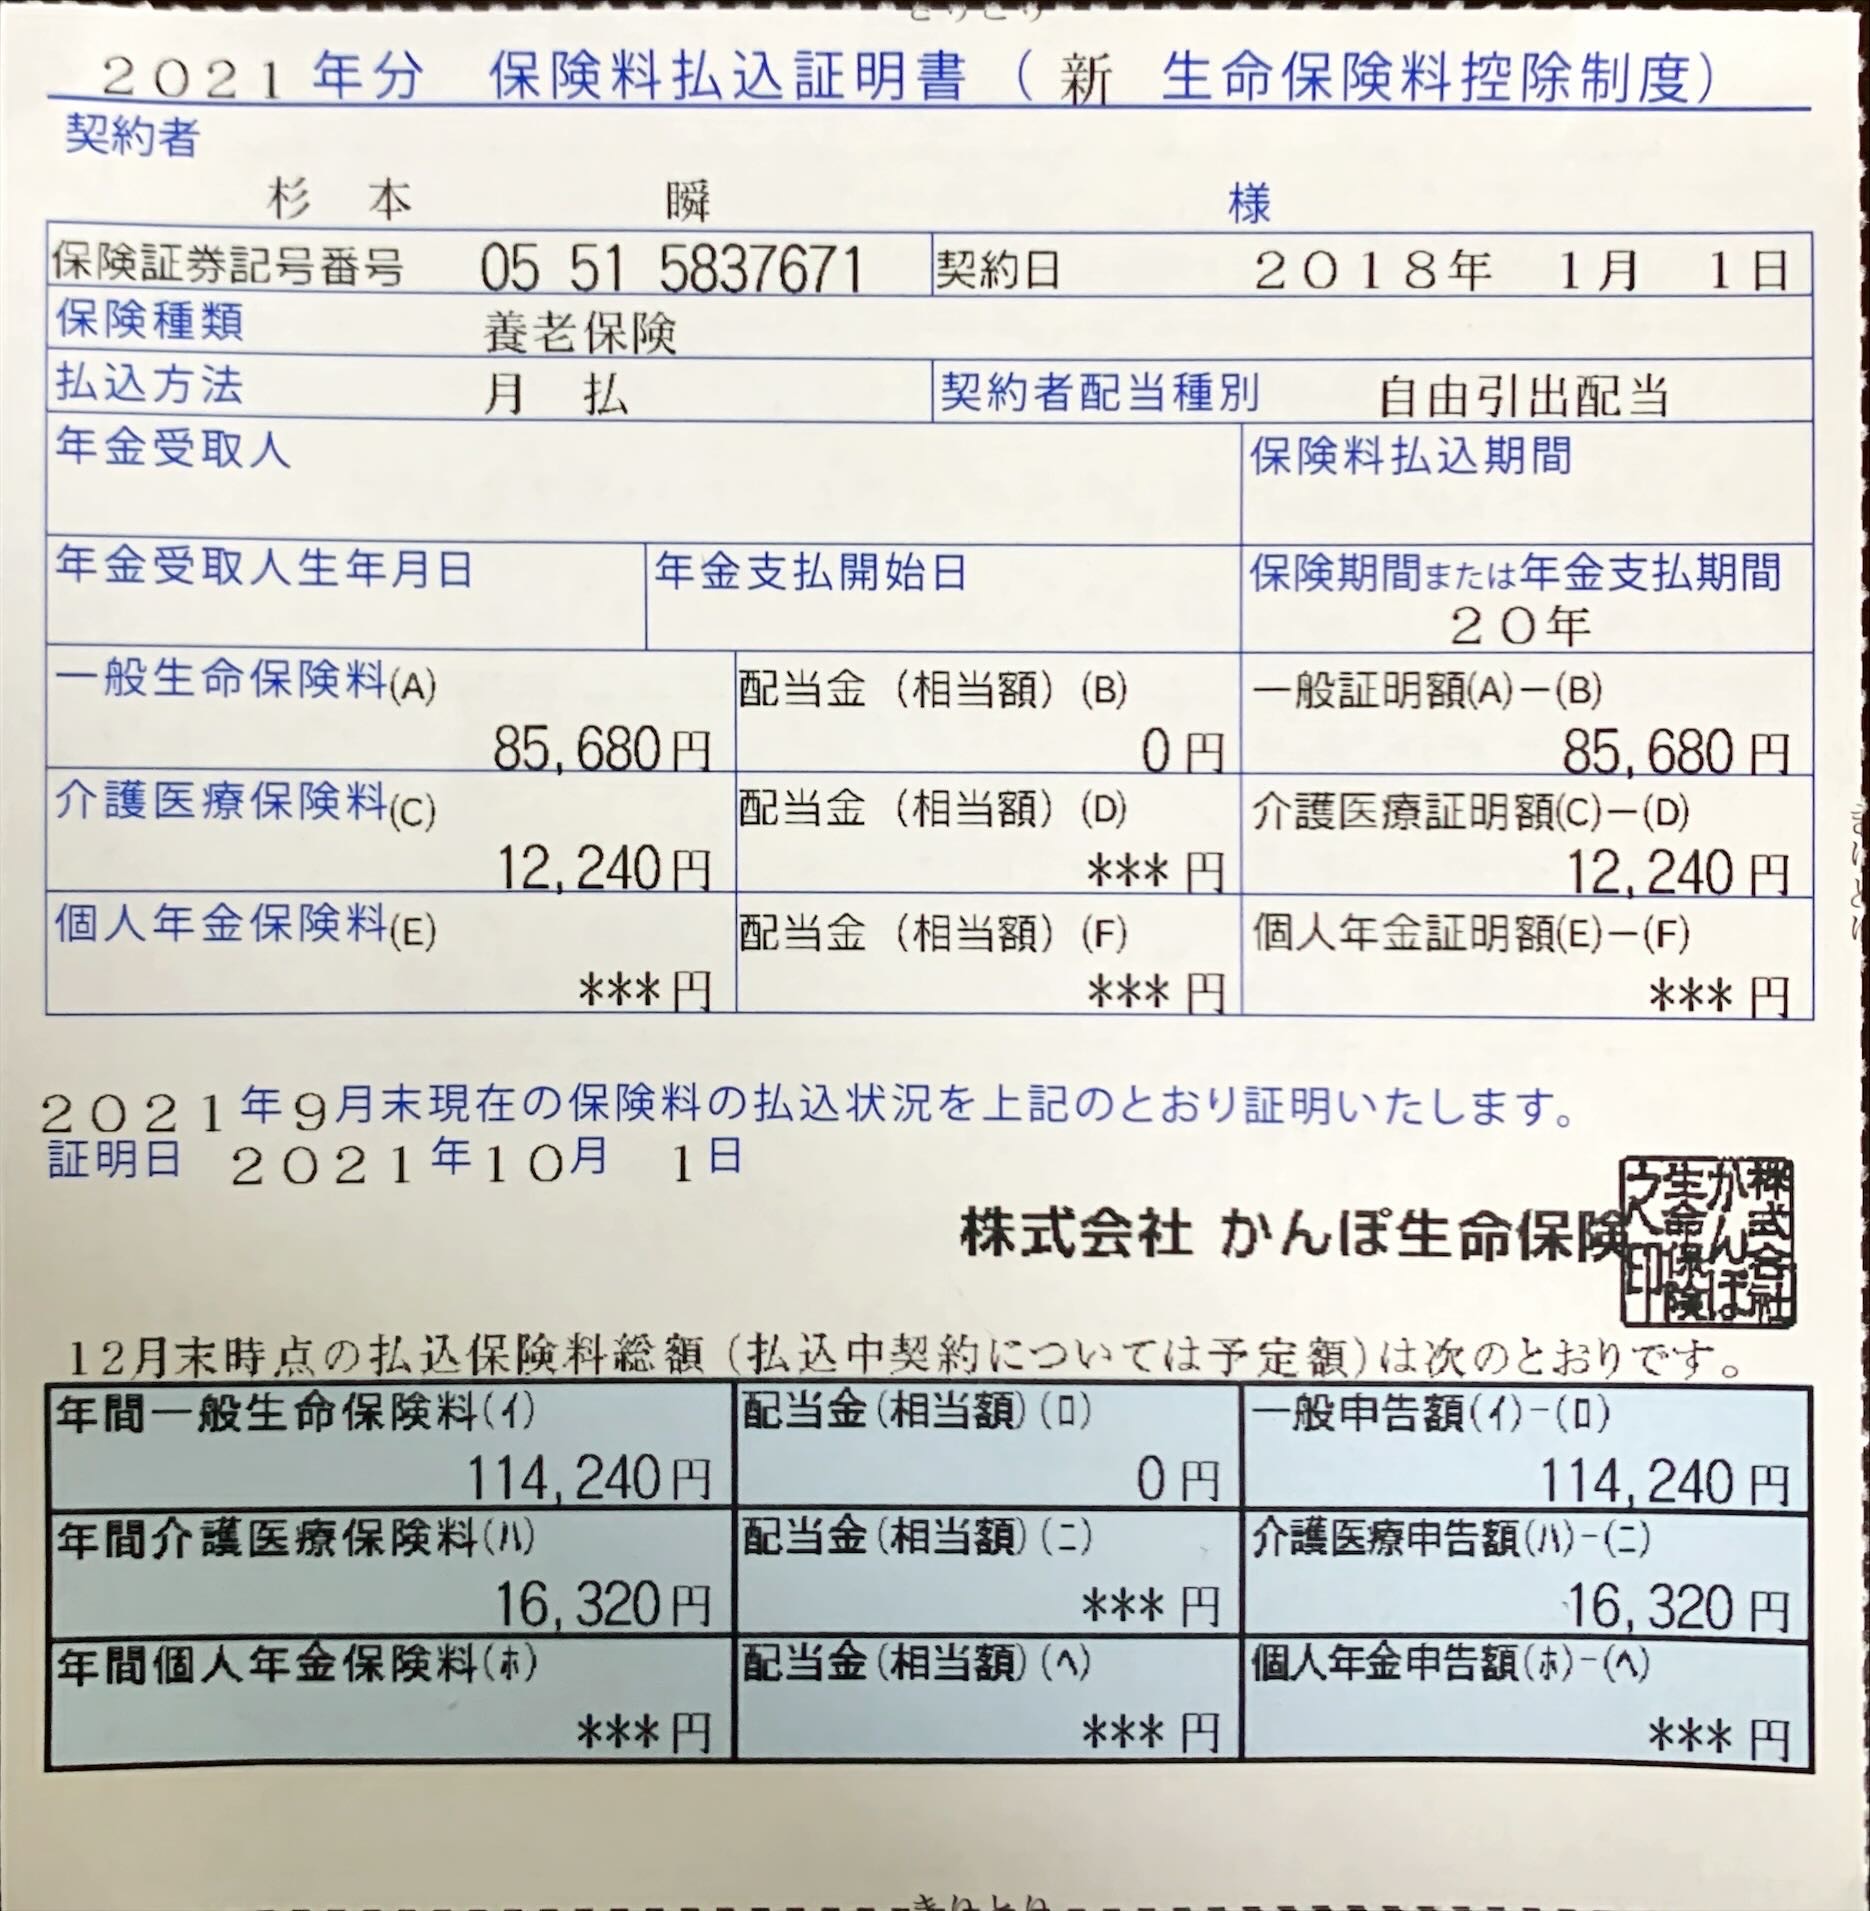 きりとり
2021年分 保険料払込証明書（新 生命保険料控除制度）
契約者
杉本 瞬 様
保険証券記号番号 05 51 5837671 契約日 2018年 1月 1日
保険種類 養老保険
払込方法 月 払 契約者配当種別 自由引出配当
年金受取人 保険料払込期間
年金受取人生年月日 年金支払開始日 保険期間または年金支払期間
20年
一般生命保険料(A) 配当金（相当額）(B) 一般証明額(A)－(B)
85,680円 0円 85,680円
介護医療保険料(C) 配当金（相当額）(D) 介護医療証明額(C)－(D)
12,240円 ***円 12,240円
個人年金保険料(E) 配当金（相当額）(F) 個人年金証明額(E)－(F)
***円 ***円 ***円
きりとり
2021年9月末現在の保険料の払込状況を上記のとおり証明いたします。
証明日 2021年10月 1日
株式会社 かんぽ生命保険
株式会社かんぽ生命保険之印
12月末時点の払込保険料総額（払込中契約については予定額）は次のとおりです。
年間一般生命保険料(イ) 配当金(相当額)(ロ) 一般申告額(イ)-(ロ)
114,240円 0円 114,240円
年間介護医療保険料(ハ) 配当金(相当額)(ニ) 介護医療申告額(ハ)-(ニ)
16,320円 ***円 16,320円
年間個人年金保険料(ホ) 配当金(相当額)(ヘ) 個人年金申告額(ホ)-(ヘ)
***円 ***円 ***円
きりとり